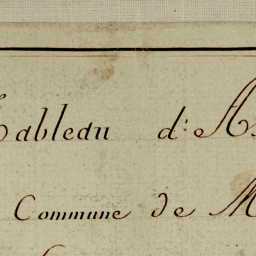 Tableau d'As
Commune de M